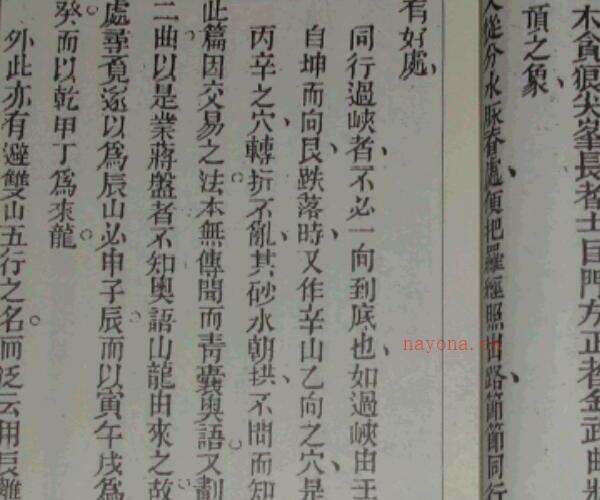 木貪狼尖峯長者士目門方正者金武曲
頂之象
人從分水脉脊處便把羅經照出路節節同行
有好處
同行過峽者不必一向到底也如過峽由壬
自坤而向艮跌落時又作辛山乙向之穴是
丙辛之穴轉折不亂其砂水朝拱不問而知
此篇因交易之法本無傳聞而靑囊奥語又劃
二曲以是業蔣盤者不知奥語山龍由來之故
處尋覓遂以爲辰山必申子辰而以寅午戌爲
癸而以乾甲丁爲來龍
外此亦有避雙山五行之名而泛云用艮離
nayona.cn